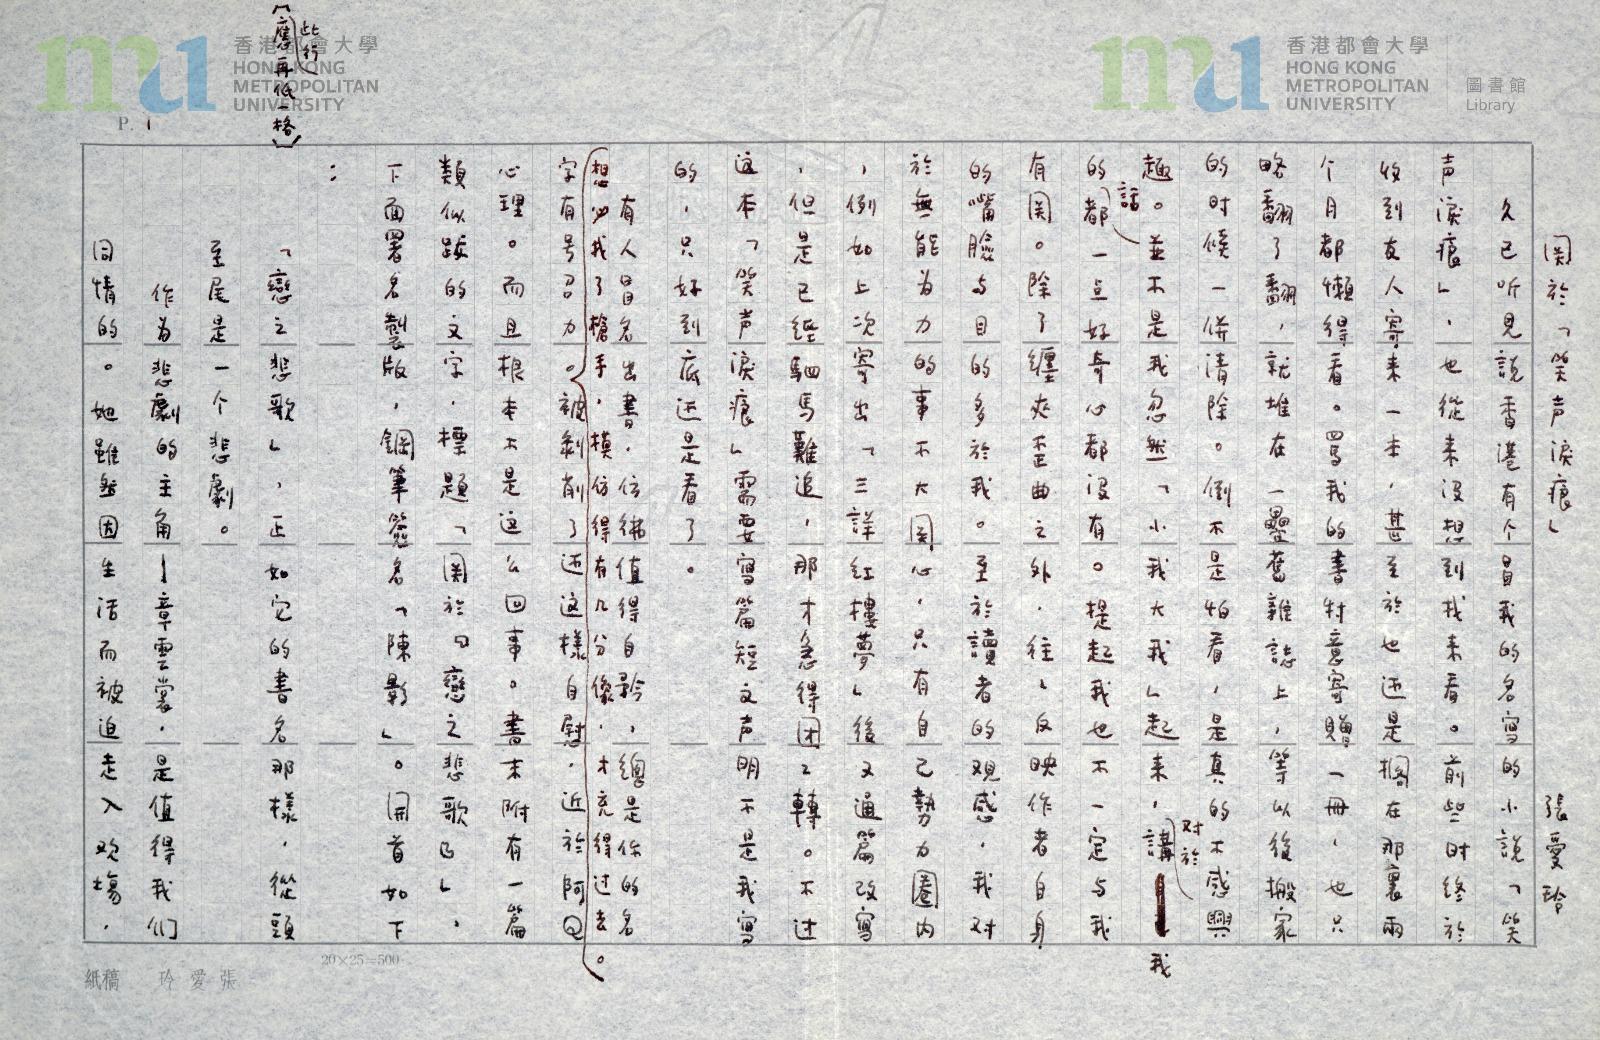 此行
(應再低一格)
香港都會大學
HONG KONG
METROPOLITAN
UNIVERSITY
香港都會大學
HONG KONG
METROPOLITAN
UNIVERSITY
圖書館
Library
P. 1
関於「笑声淚痕」
張愛玲
久已听見說香港有个冒我的名寫的小說「笑
声淚痕」，也從来沒想到找来看。前些时終於
收到友人寄来一本，甚至於也还是擱在那裏兩
个月都懶得看。罵我的書刊意寄贈一冊，也只
略翻了翻，就堆在一疊舊雜誌上，等以後搬家
的时候一併清除。倒不是怕看，是真的不感興
趣。並不是我忽然「小我大我」起来，講我
对於
的話都一点好奇心都沒有。提起我也不一定与我
有関。除了纏夾歪曲之外，往々反映作者自身
的嘴臉与目的多於我。至於讀者的观感，我对
於無能为力的事不大関心，只有自己勢力圈内
，例如上次寄出「三詳紅樓夢」後又通篇改寫
，但是已經駟馬難追，那才急得団々轉。不过
这本「笑声淚痕」需要寫篇短文声明不是我寫
的，只好到底还是看了。
有人冒名出書，彷彿值得自矜，總是你的名
想必我了槍手，模仿得有几分像，才充得过去。
字有号召力。被剝削了还这樣自慰，近於阿Q
心理。而且根本不是这么回事。書末附有一篇
類似跋的文字，標題「関於『戀之悲歌』」，
下面署名製版，鋼筆簽名「陳影」。開首如下
：
「戀之悲歌」，正如它的書名那樣，從頭
至尾是一个悲劇。
作为悲劇的主角—章雲裳，是值得我们
同情的。她雖然因生活而被迫走入欢場，
20×25=500
張愛玲 稿紙